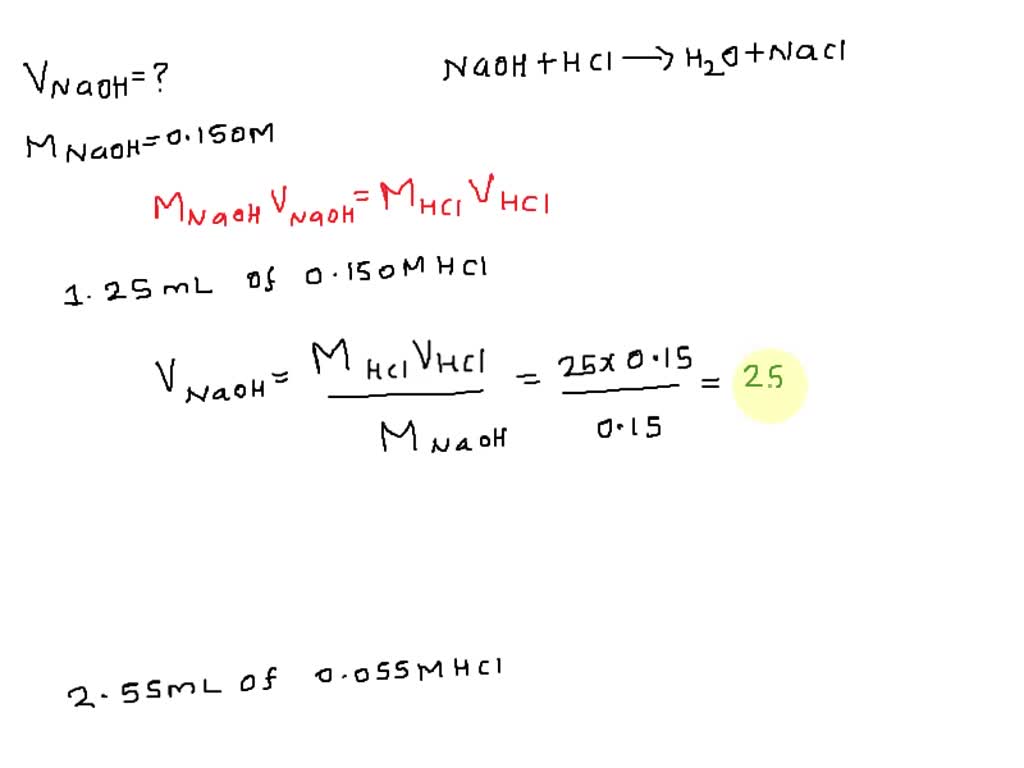 V NaOH = ?
NaOH + HCl → H2O + NaCl
M NaOH = 0.150M
M NaOH V NaOH = M HCl V HCl
1. 25 mL of 0.150M HCl
V NaOH = M HCl V HCl / M NaOH = 25 x 0.15 / 0.15 = 25
2. 55mL of 0.055M HCl